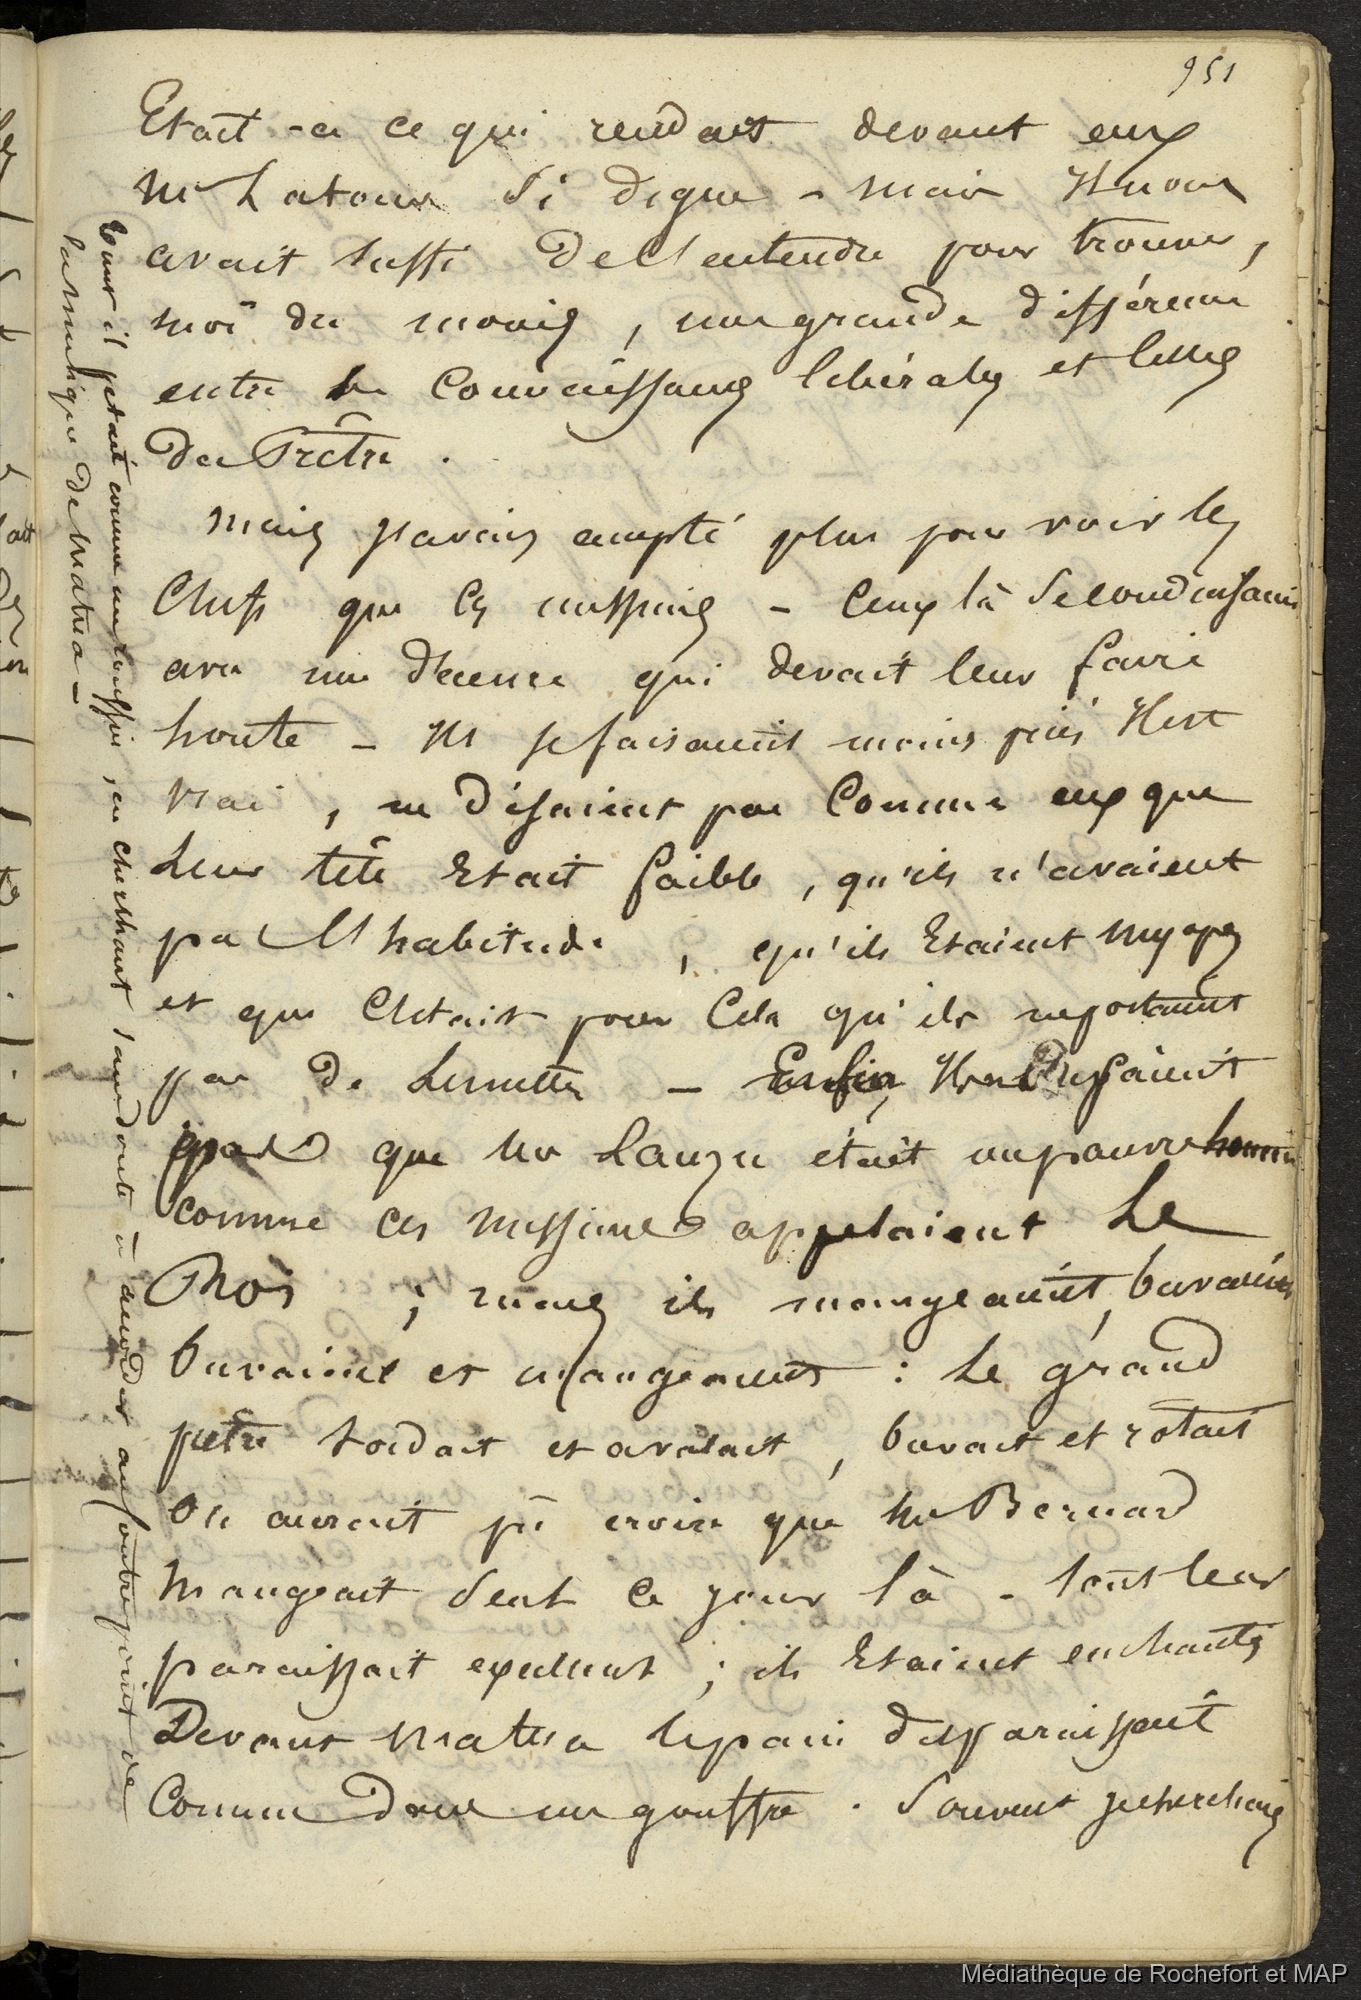 951
Etait-ce ce qui rendait devant eux
Mr Latour si digne - mais il nous
avait suffi de l'entendre pour trouver,
moi du moins, une grande différence
entre les connaissances libérales et celles
du Prêtre.
Mais j'avais compté plus pour voir les
Chefs que ces messieurs - ceux là se conduisaient
avec une décence qui devait leur faire
honte - ils se faisaient moins prier il est
vrai, ne disaient pas comme eux que
leur tête Etait faible, qu'ils n'avaient
pas l'habitude, qu'ils Etaient myopes
et que c'était pour cela qu'ils ne portaient
pas de lunettes - Enfin, ils ne disaient
pas que Mr Lauzu était un pauvre homme
comme ces messieurs appelaient Le
Roi; mais ils mangeaient, buvaient
buvaient et mangeaient: Le grand
prêtre tordait et avalait, buvait et rotait
On aurait pu croire que Mr Bernard
mangeait seul ce jour là - tout leur
paraissait excellent; ils Etaient enchantés
Devant Matua le pain disparaissait
Comme dans un gouffre. Souvent je cherchais
Tantôt il pétait comme un roussin, en cherchant sans doute à accorder au contre-point de
la musique de Matua -
Médiathèque de Rochefort et MAP